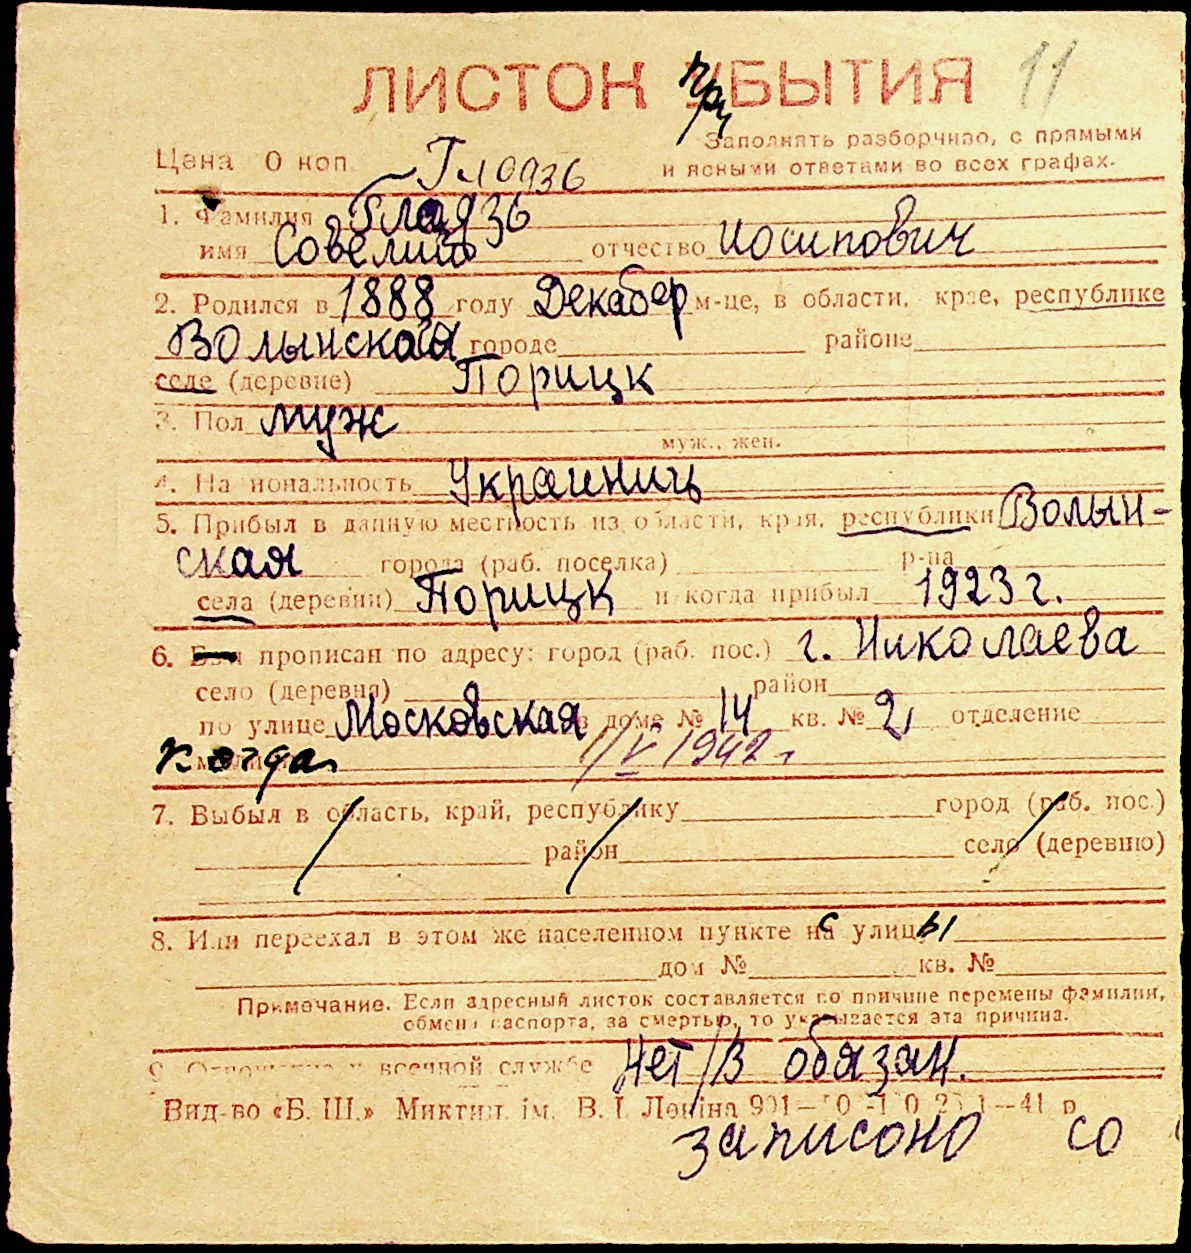 ЛИСТОК при УБЫТИЯ 11
Цена 0 коп. Заполнять разборчиво, с прямыми
и ясными ответами во всех графах.
1. Фамилия
имя отчество Иосипович
2. Родился в 1888 году Декабер м-це, в области, крае, республике
Волынская городе районе
селе (деревне) Порицк
3. Пол муж
муж., жен.
4. Национальность Украиниць
5. Прибыл в данную местность из области, края, республики Волын-
ская города (раб. поселка) р-на
села (деревни) Порицк и когда прибыл 1923 г.
6. Был прописан по адресу: город (раб. пос.) г. Николаева
село (деревня) район
по улице Московская в доме № 14 кв. № 2 отделение
когда 1/V 1942 г
7. Выбыл в область, край, республику город (раб. пос.)
район село (деревню)
8. Или переехал в этом же населенном пункте с улицы
дом № кв. №
Примечание. Если адресный листок составляется по причине перемены фамилии,
обмена паспорта, за смертью, то указывается эта причина.
9. Отношение к военной службе Нет/В обязан.
Вид-во «Б. Ш.» Миктип. ім. В. І. Леніна
записоно со